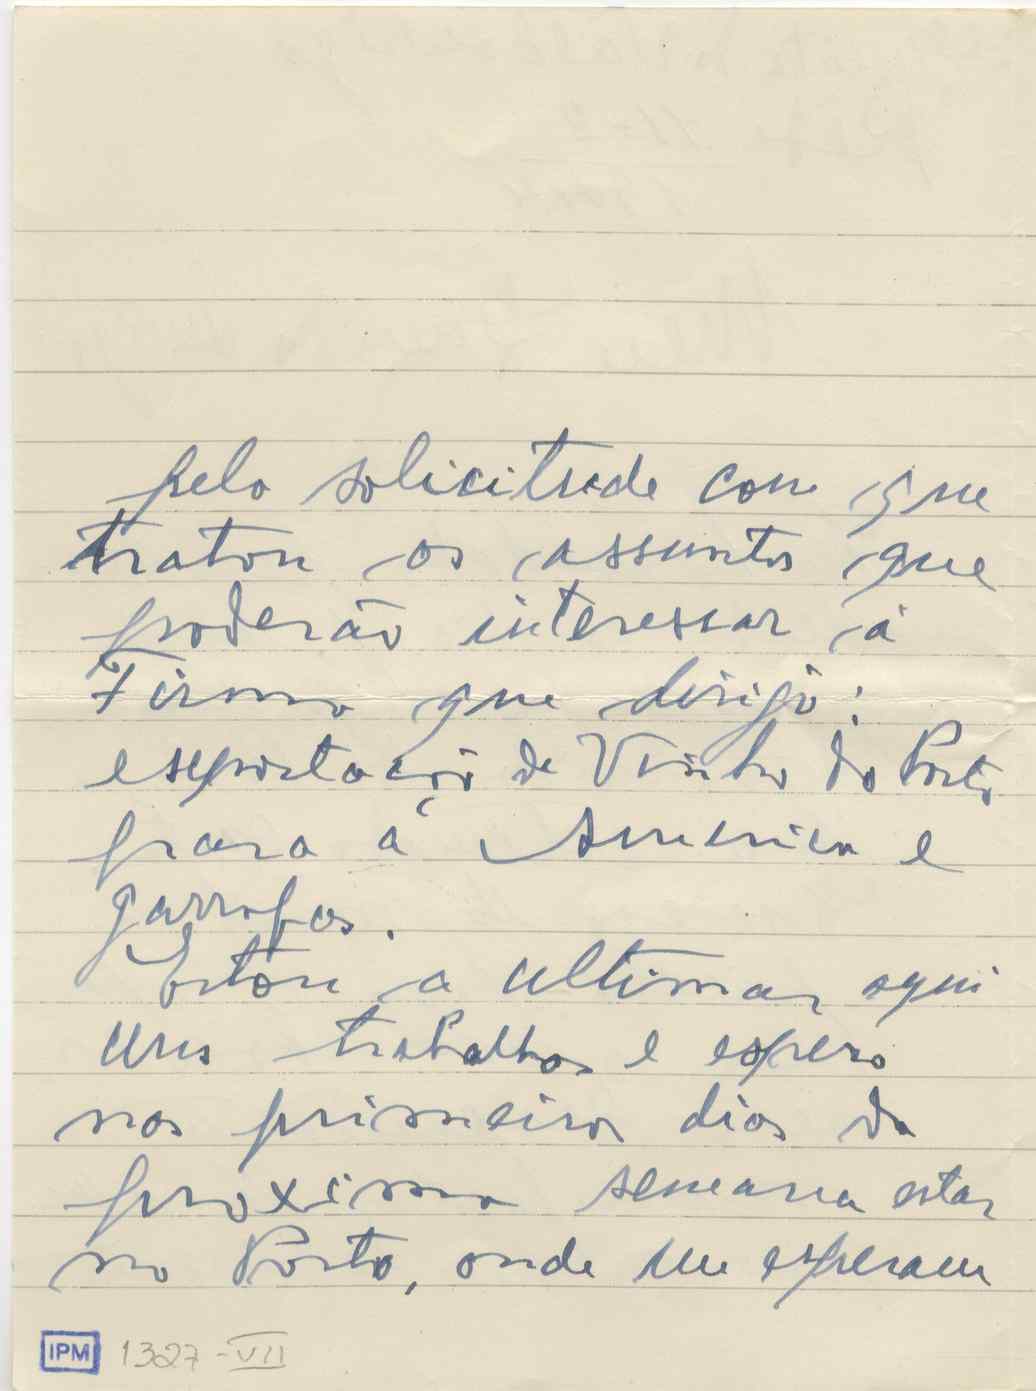 pela solicitude com que
tratou os assuntos que
poderão interessar á
Firma que dirijo:
exportação de Vinho do Porto
para a America e
garrafas.
Estou a ultimar aqui
uns trabalhos e espero
nos primeiros dias da
proxima semana estar
no Porto, onde me esperam
IPM 1327-VII